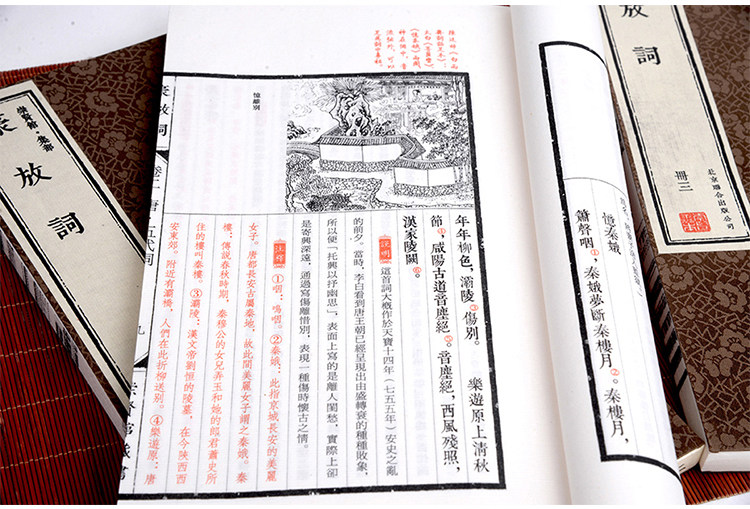 放詞
冊三
北京聯合出版公司
憶秦娥
簫聲咽①，秦娥夢斷秦樓月②。秦樓月，
年年柳色，灞陵③傷別。 樂遊原上清秋
節④，咸陽古道音塵絕⑤。音塵絕，西風殘照，
漢家陵闕⑥。
《憶秦娥》兩闋
神在個中，音
流弦外，可以
憶離別
【說明】這首詞大概作於天寶十四年（七五五年）安史之亂
的前夕。當時，李白看到唐王朝已經呈現出由盛轉衰的種種敗象，
所以便「托興以抒幽思」，表面上寫的是離人閨愁，實際上卻
是寄興深遠，通過寫傷離惜別，表現一種傷時懷古之情。
【註釋】①咽：嗚咽。②秦娥：此指京城長安的美麗
女子。唐都長安古屬秦地，故此間美麗女子謂之秦娥。秦
樓：傳說春秋時期，秦穆公的女兒弄玉和她的郎君蕭史所
住的樓叫秦樓。③灞陵：漢文帝劉恒的陵墓，在今陝西西
安東郊。附近有灞橋，人們在此折柳送別。④樂遊原：唐
豪放詞
卷一
唐·五代詞
九
豪放詞